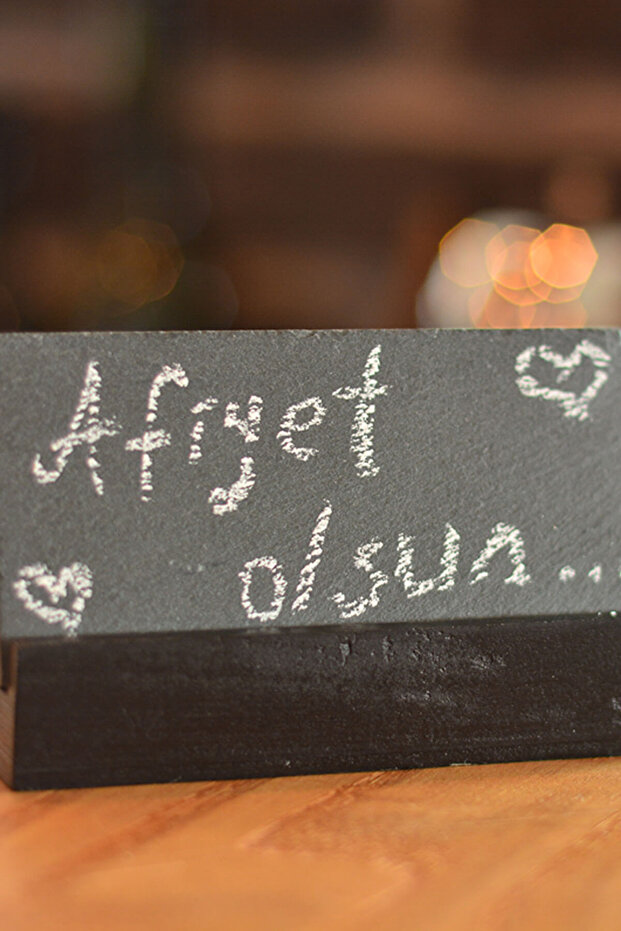 Afiyet
olsun...